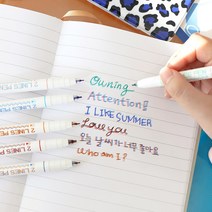 Owning
Attention!!
I LIKE SUMMER
Love you
오늘 날씨 참 너무 좋아요
who am I?
2 LINES PEN
2 LINES PEN
2 LINES PEN
2 LINES PEN
2 LINES PEN